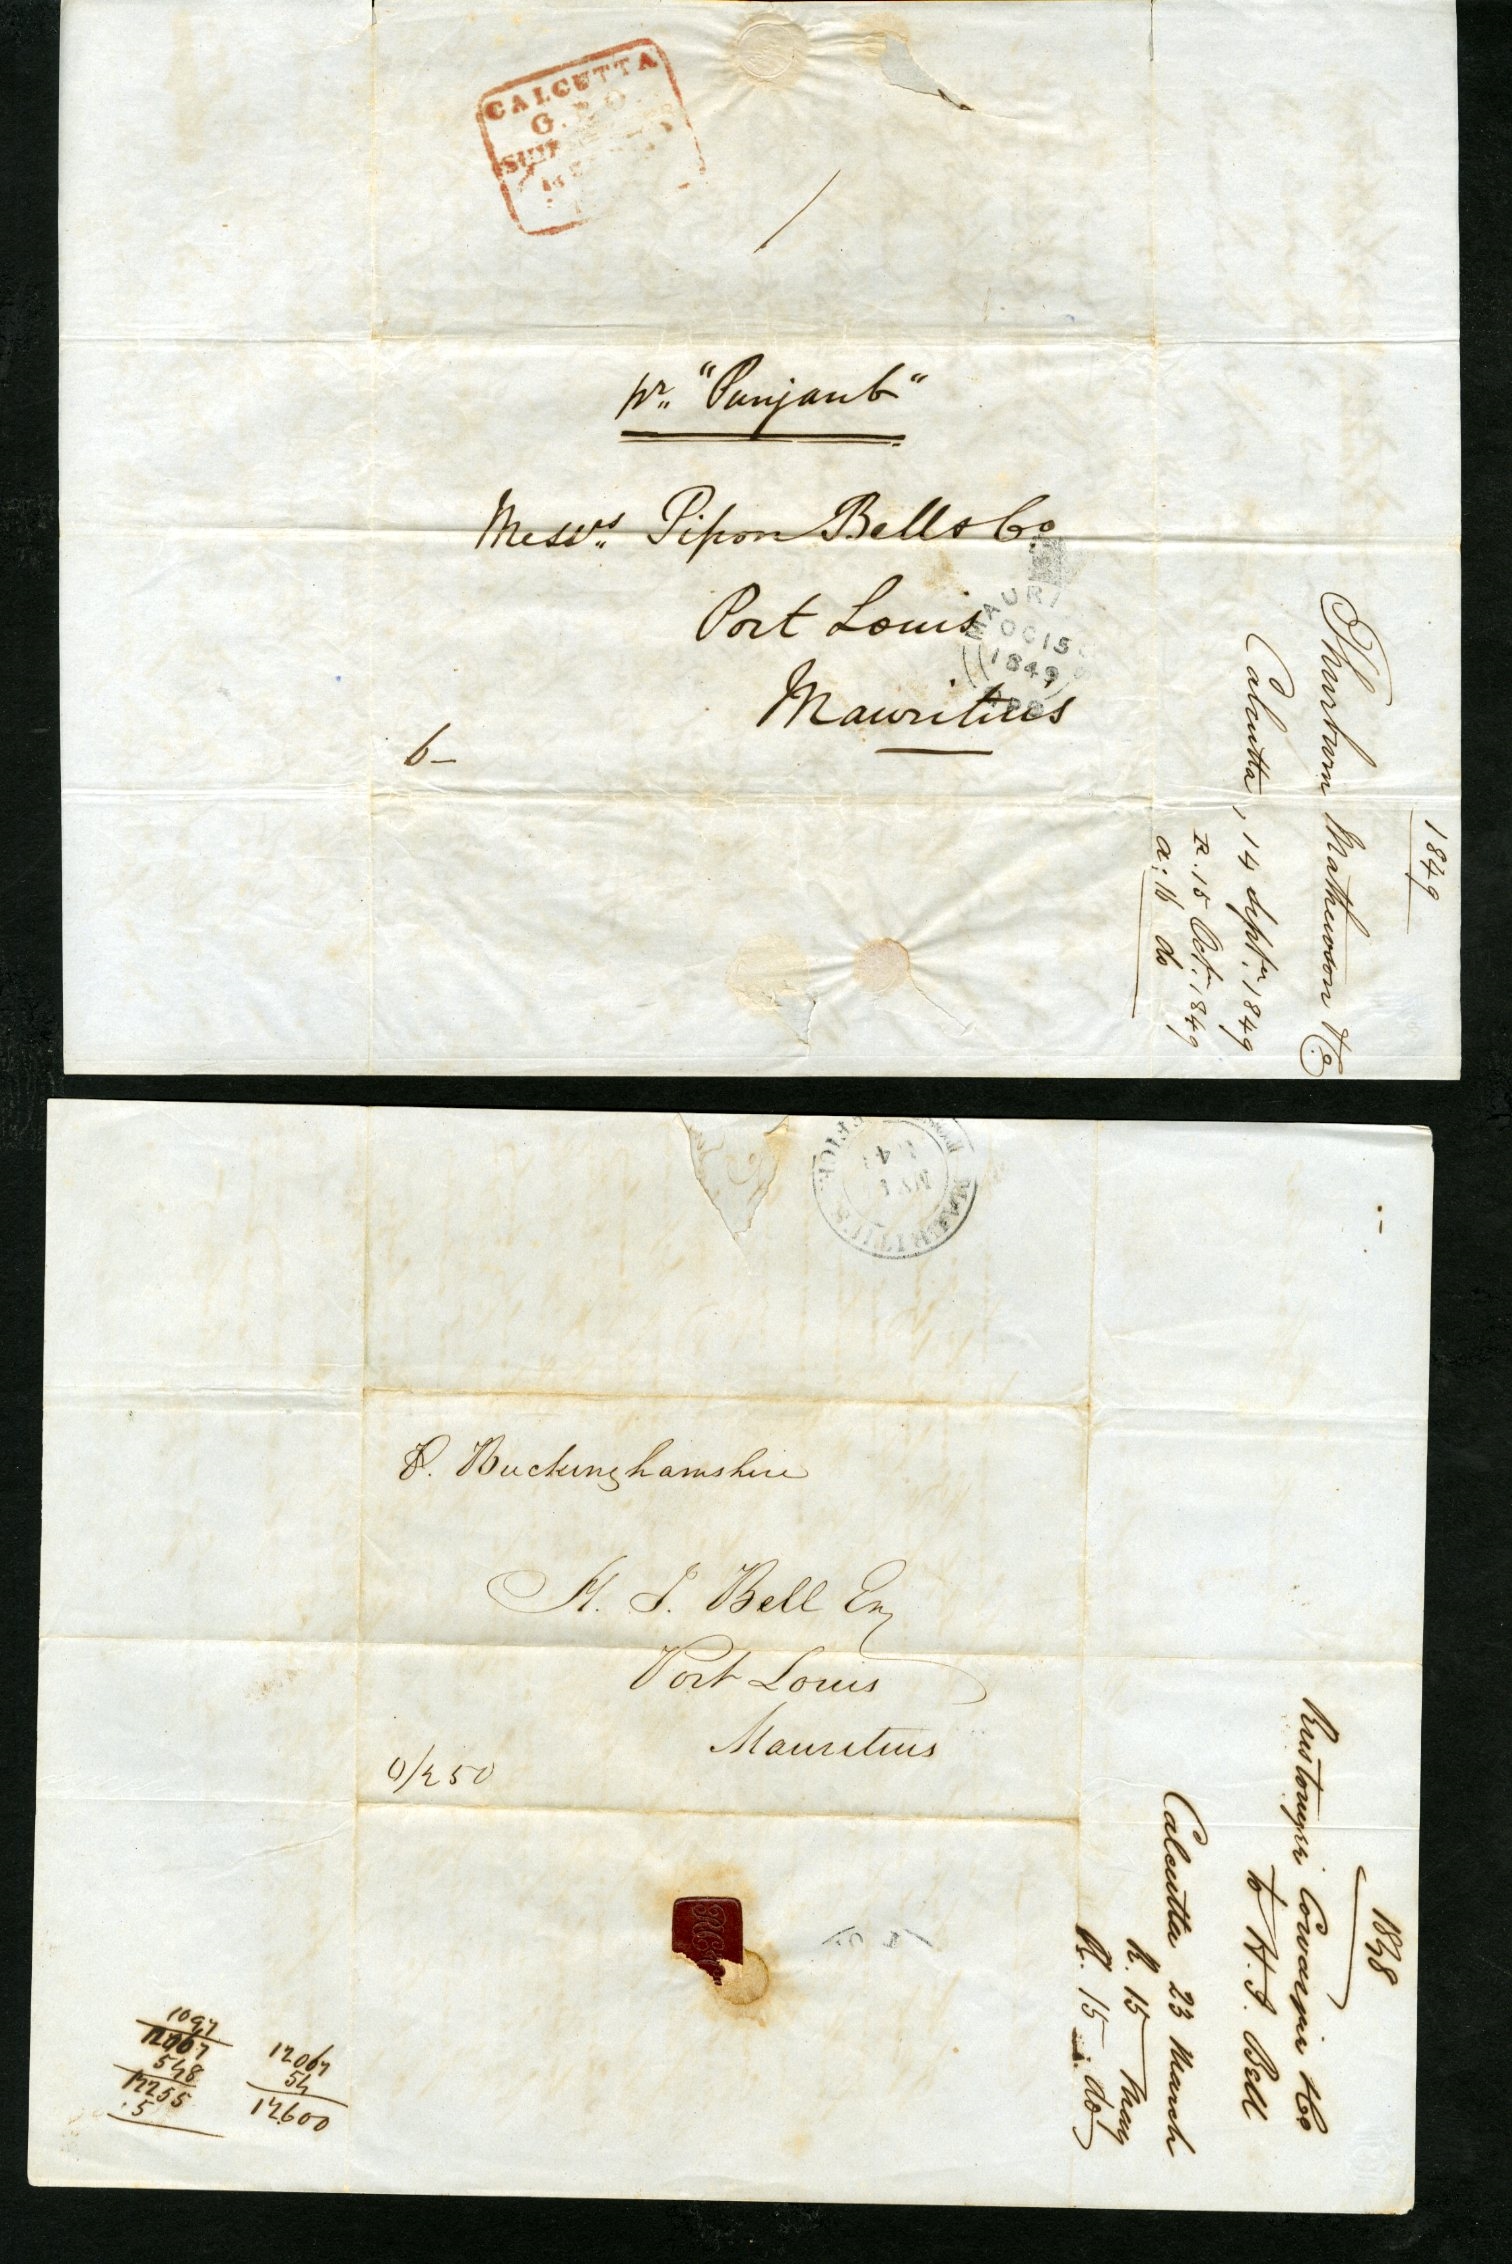 CALCUTTA
G.P.O.
pr. "Punjaub"
Messrs. Pipon Bell & Co
Port Louis
Mauritius
6-
MAURI
OC 15
1849
1849
Thurburn Mathewson & Co
Calcutta, 14 Septr. 1849
R. 15 Octr. 1849
a: 16 do
MAURITIUS
P. Buckinghamshire
H. J. Bell Esq
Port Louis
Mauritius
0/250
1848
Rustomjee Cowasjee & Co
to H. J. Bell
Calcutta 23 March
R. 15 May
R. 15 do
1097
12067
548
12255
.5
12067
54
12600